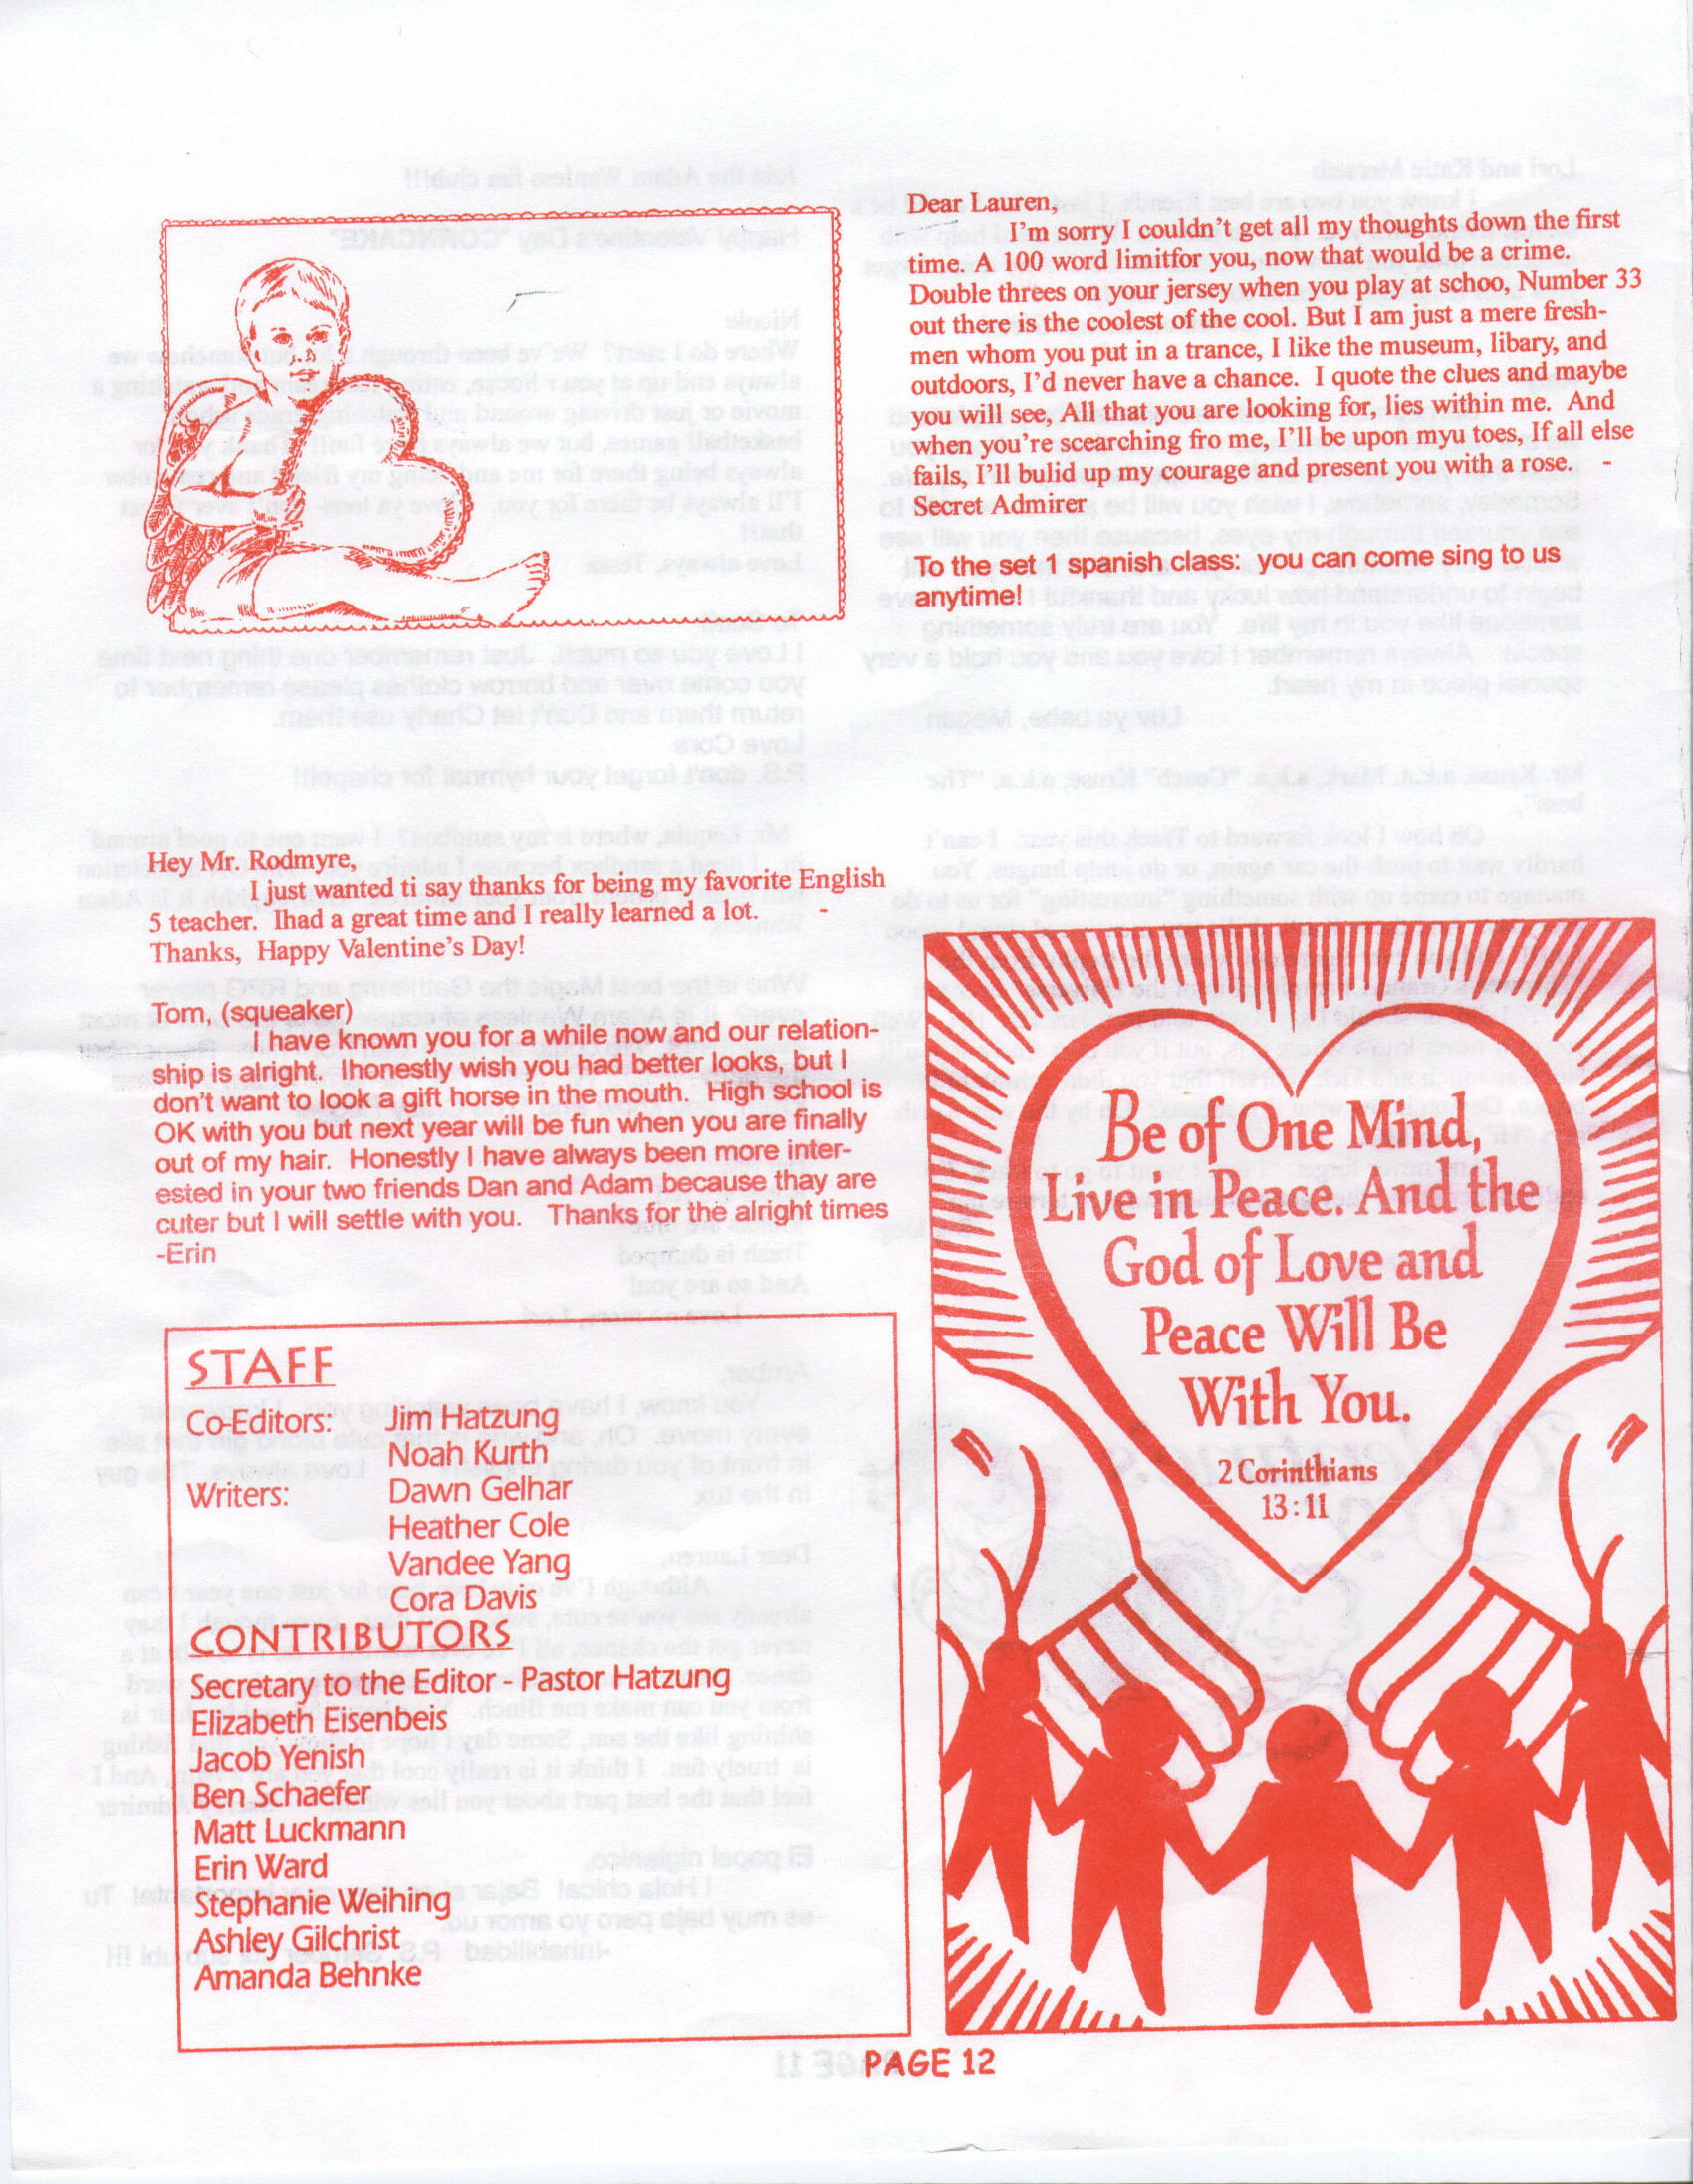 Dear Lauren,
I'm sorry I couldn't get all my thoughts down the first
time. A 100 word limitfor you, now that would be a crime.
Double threes on your jersey when you play at schoo, Number 33
out there is the coolest of the cool. But I am just a mere fresh-
men whom you put in a trance, I like the museum, libary, and
outdoors, I'd never have a chance. I quote the clues and maybe
you will see, All that you are looking for, lies within me. And
when you're scearching fro me, I'll be upon myu toes, If all else
fails, I'll bulid up my courage and present you with a rose. -
Secret Admirer
To the set 1 spanish class: you can come sing to us
anytime!
Hey Mr. Rodmyre,
I just wanted ti say thanks for being my favorite English
5 teacher. Ihad a great time and I really learned a lot. -
Thanks, Happy Valentine's Day!
Tom, (squeaker)
I have known you for a while now and our relation-
ship is alright. Ihonestly wish you had better looks, but I
don't want to look a gift horse in the mouth. High school is
OK with you but next year will be fun when you are finally
out of my hair. Honestly I have always been more inter-
ested in your two friends Dan and Adam because thay are
cuter but I will settle with you. Thanks for the alright times
-Erin
STAFF
Co-Editors: Jim Hatzung
Noah Kurth
Writers: Dawn Gelhar
Heather Cole
Vandee Yang
Cora Davis
CONTRIBUTORS
Secretary to the Editor - Pastor Hatzung
Elizabeth Eisenbeis
Jacob Yenish
Ben Schaefer
Matt Luckmann
Erin Ward
Stephanie Weihing
Ashley Gilchrist
Amanda Behnke
Be of One Mind,
Live in Peace. And the
God of Love and
Peace Will Be
With You.
2 Corinthians
13:11
PAGE 12